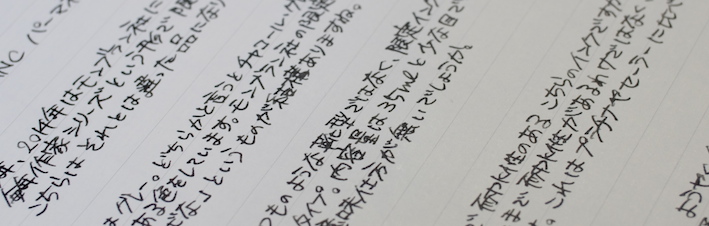 INC パーマネ
2014年はモンブラン社に
毎年作家シリーズという形で限
こちらは それとは違った品になり
グレー。どちらかと言うとチャコールグ
ある色をしています。モンブラン社の限定
な」というものが結構ありますね。
つものような靴型ではなく、限定インク
タイプ。内容量は35mlと少な目で
でしょうか。
耐水性のある こちらのインクですが
まで 耐水性があるわけではなく、
。これはプラチナやセーラーに比べ
ようやく